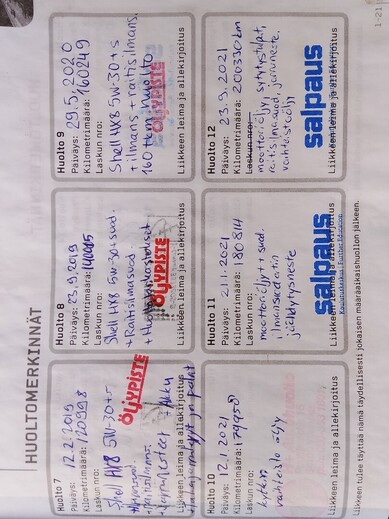 HUOLTOMERKINNÄT
Huolto 7
Päiväys: 12.2.2019
Kilometrimäärä: 120998
Laskun nro:
Shell HX8 5W-30+s
ÖLJYPISTE
Liikkeen leima ja allekirjoitus
Huolto 8
Päiväys: 23.9.2019
Kilometrimäärä:
Laskun nro:
Shell HX8 5w30+suod.
+Raitisilmasuod.
ÖLJYPISTE
Liikkeen leima ja allekirjoitus
Huolto 9
Päiväys: 29.5.2020
Kilometrimäärä: 160249
Laskun nro:
Shell HX8 5w-30+s
+ilmans+raitisilmans.
160 tkm huolto
ÖLJYPISTE
Liikkeen leima ja allekirjoitus
Huolto 10
Päiväys: 12.1.2021
Kilometrimäärä:
Laskun nro:
kytkin
Liikkeen leima ja allekirjoitus
Huolto 11
Päiväys: 21.1.2021
Kilometrimäärä: 180814
Laskun nro:
moottoriöljyt+suod.
jäähdytysneste
salpaus
Koulutuskeskus | Further Education
Liikkeen leima ja allekirjoitus
Huolto 12
Päiväys: 23.9.2021
Kilometrimäärä: 200330km
Laskun nro:
moottoriöljy, sytytystulpat,
raitisilmasuod, jarruneste,
vaihteistoöljy
salpaus
Liikkeen leima ja allekirjoitus
Liikkeen tulee täyttää nämä täydellisesti jokaisen määräaikaishuollon jälkeen.
1-21